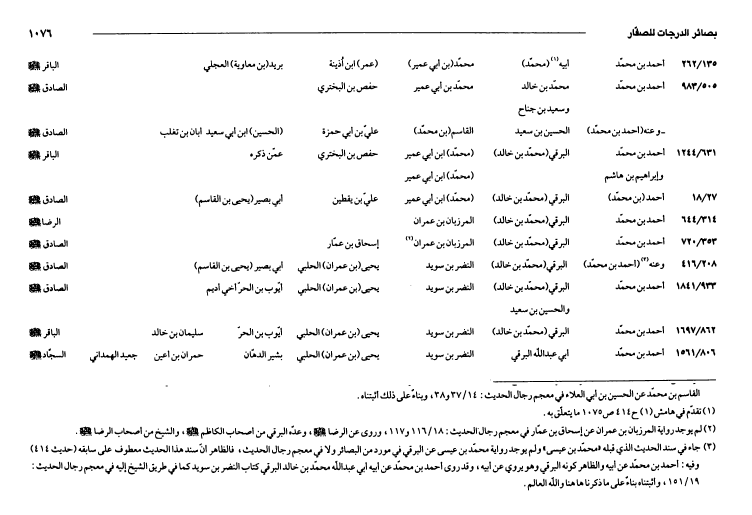 بصائر الدرجات للصفّار ١٠٧٦
٢٦٢/١٣٥ احمد بن محمّد ابيه(١)(محمّد) محمّد(بن ابي عمير) (عمر) ابن أذينة بريد(بن معاوية) العجلي الباقر ﷺ
٩٨٣/٥٠٥ احمد بن محمّد محمّد بن خالد محمّد بن أبي عمير حفص بن البختري الصادق ﷺ
وسعيد بن جناح
ـ وعنه(احمد بن محمّد) الحسين بن سعيد القاسم(بن محمّد) عليّ بن أبي حمزة (الحسين) ابن ابي سعيد ابان بن تغلب الصادق ﷺ
١٢٤٤/٦٣١ احمد بن محمّد البرقي(محمّد بن خالد) (محمّد) ابن ابي عمير حفص بن البختري عمّن ذكره الباقر ﷺ
وإبراهيم بن هاشم (محمّد) ابن ابي عمير
١٨/٢٧ احمد(بن محمّد) البرقي(محمّد بن خالد) (محمّد) ابن ابي عمير عليّ بن يقطين أبي بصير(يحيى بن القاسم) الصادق ﷺ
٦٤٤/٣١٤ احمد بن محمّد البرقي(محمّد بن خالد) المرزبان بن عمران الرضا ﷺ
٧٢٠/٣٥٣ احمد بن محمّد البرقي(محمّد بن خالد) المرزبان بن عمران(٢) إسحاق بن عمّار الصادق ﷺ
٤١٦/٢٠٨ وعنه(٣)(احمد بن محمّد) البرقي(محمّد بن خالد) النضر بن سويد يحيى(بن عمران) الحلبي أبي بصير (يحيى بن القاسم) الصادق ﷺ
١٨٤١/٩٣٣ احمد بن محمّد البرقي(محمّد بن خالد) النضر بن سويد يحيى(بن عمران) الحلبي ايّوب بن الحرّ أخي أديم الصادق ﷺ
والحسين بن سعيد
١٦٩٧/٨٦٢ احمد بن محمّد البرقي(محمّد بن خالد) النضر بن سويد يحيى(بن عمران) الحلبي ايّوب بن الحرّ سليمان بن خالد الباقر ﷺ
١٥٦١/٨٠٦ احمد بن محمّد أبي عبداللّه البرقي النضر بن سويد يحيى(بن عمران) الحلبي بشير الدهّان حمران بن أعين جعيد الهمداني السجّاد ﷺ
القاسم بن محمّد عن الحسين بن أبي العلاء في معجم رجال الحديث : ٣٧/١٤ و٣٨، وبناءً على ذلك أثبتناه.
(١) تقدّم في هامش (١) ح٤١٤ ص١٠٧٥ ما يتعلّق به.
(٢) لم يوجد رواية المرزبان بن عمران عن إسحاق بن عمّار في معجم رجال الحديث: ١١٦/١٨ و١١٧، وروى عن الرضا ﷺ، وعدّه البرقي من أصحاب الكاظم ﷺ، والشيخ من أصحاب الرضا ﷺ.
(٣) جاء في سند الحديث الذي قبله «محمّد بن عيسى» ولم يوجد رواية محمّد بن عيسى عن البرقي في مورد من البصائر ولا في معجم رجال الحديث، فالظاهر أنّ سند هذا الحديث معطوف على سابقه (حديث ٤١٤)
وفيه: أحمد بن محمّد عن أبيه والظاهر كونه البرقي وهو يروي عن أبيه، وقد روى أحمد بن محمّد عن أبيه أبي عبداللّه محمّد بن خالد البرقي كتاب النضر بن سويد كما في طريق الشيخ إليه في معجم رجال الحديث:
١٥١/١٩، وأثبتناه بناءً على ما ذكرنا ها هنا واللّه العالم.